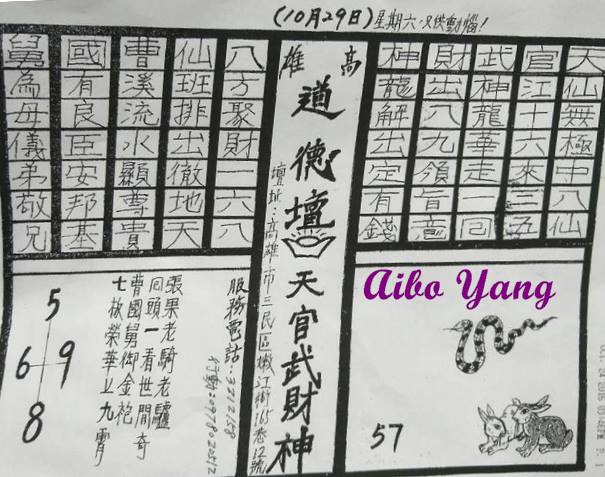 (10月29日)星期六.又供動腦!
天仙無極中八仙
官江十六來三五
武神龍華走一回
財出八九領旨意
神龍解出定有錢
高雄
道德壇 天官武財神
壇址:高雄市三民區嫩江街165巷12號
八方聚財一六八
仙班排出徹地天
曹溪流水顯尊貴
國有良臣安邦基
舅為母儀弟敬兄
Aibo Yang
57
服務電話:
行動:
張果老騎老驢
回頭一看世間奇
曹國舅御金袍
七採榮華上九霄
5
6 9
8